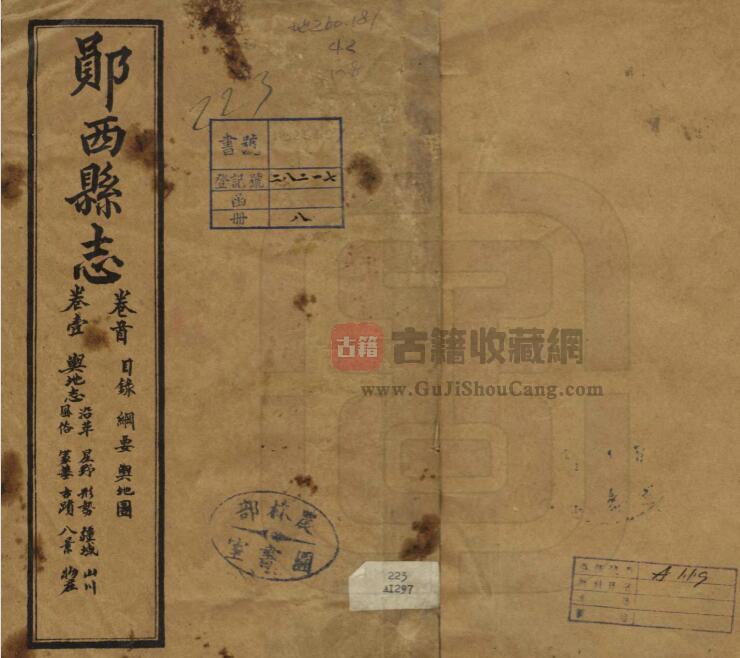 鄖西縣志
卷首 目錄 綱要 輿地圖
卷壹 輿地志 沿革 星野 形勢 疆域 山川
風俗 冢墓 古蹟 八景 物產
地260.181
42
223
書號
登記號 二八二一七
函
冊 八
古籍 古籍收藏網
www.GuJiShouCang.com
農林部
圖書室
223
AI297
A 119